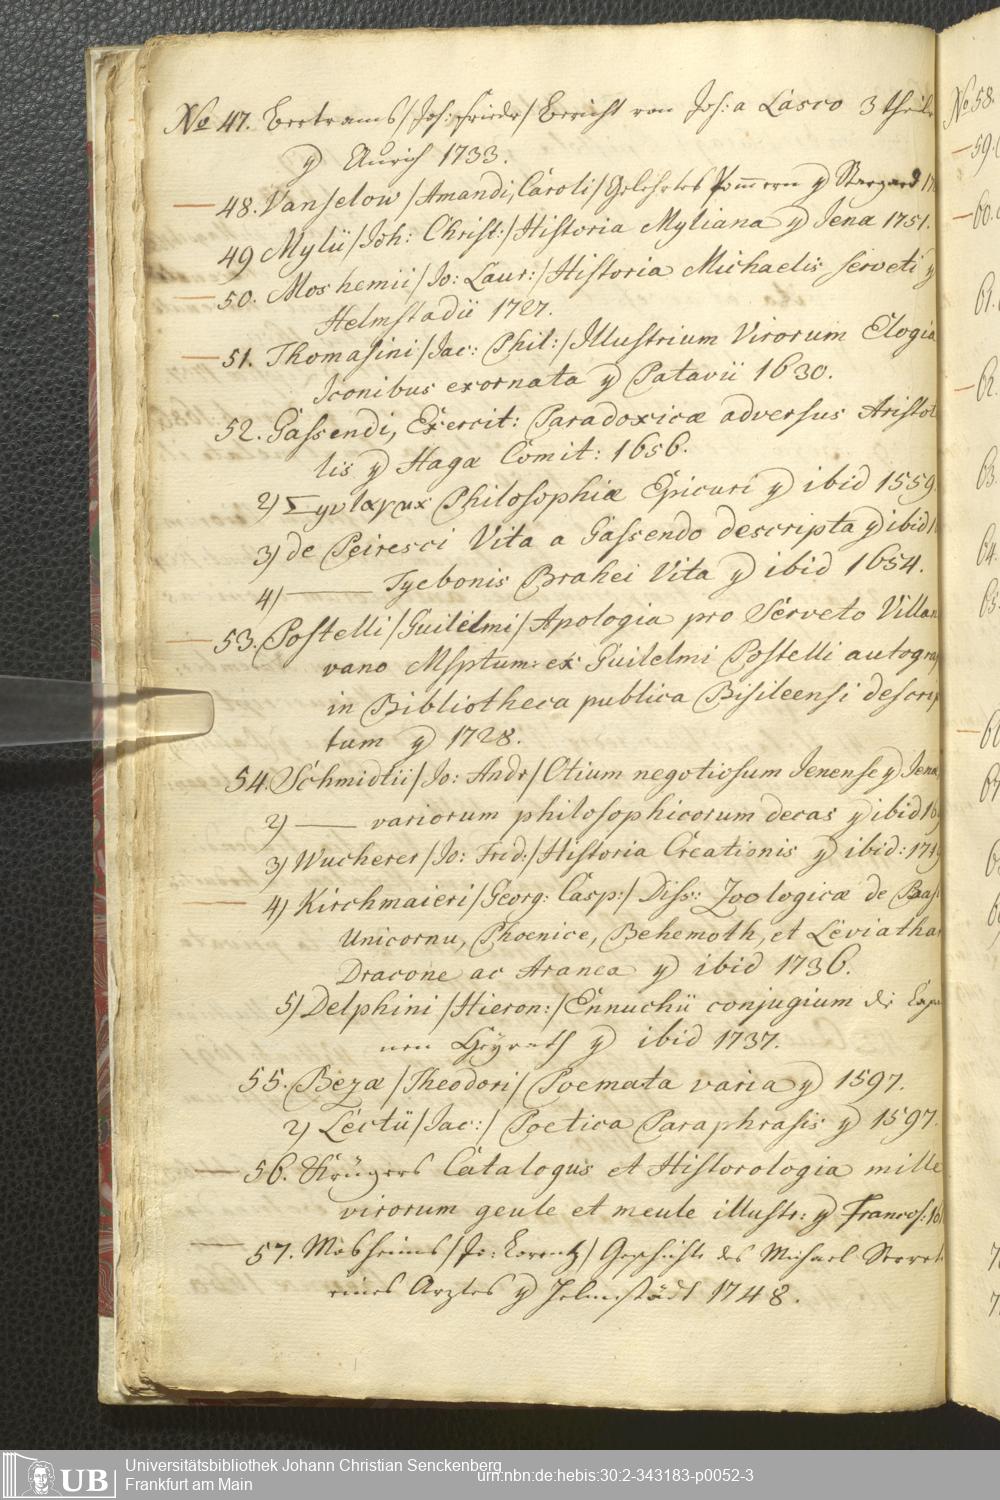 No 47. Bertrams /Joh: Friedr/ Bericht von Joh: a Lasco 3 theile
ꝙ Aurich 1733.
48. Vanselow /Amandi, Caroli/ Gelehrtes Pom̄ern ꝙ Stargard 17
49 Mylii /Joh: Christ:/ Historia Myliana ꝙ Jena 1751.
50. Moshemii /Jo: Laur:/ Historia Michaelis Serveti ꝙ
Helmstadii 1727.
51. Thomasini /Jac: Phil:/ Illustrium Virorum Elogia
Iconibus exornata ꝙ Patavii 1630.
52. Gassendi, Exercit: Paradoxicæ adversus Aristot
lis ꝙ Hagæ Comit: 1656.
2) Philosophiæ Epicuri ꝙ ibid 1559.
3) de Peiresci Vita a Gassendo descripta ꝙ ibid 1
4) —— Tycbonis Brahei Vita ꝙ ibid 1654.
53. Postelli /Guilelmi/ Apologia pro Serveto Villan
vano Msptum: ex Guilelmi Postelli autogra
in Bibliotheca publica Bisileensi descrip
tum ꝙ 1728.
54. Schmidtii /Jo: Andr/ Otium negotiosum Jenense ꝙ Jenæ
2) —— variorum philosophicorum decas ꝙ ibid 169
3) Wucherer /Jo: Frid:/ Historia Creationis ꝙ ibid: 1719
4) Kirchmaieri /Georg: Casp:/ Diss: Zoologicæ de Basi
Unicornu, Phoenice, Behemoth, et Leviatha
Dracone ac Aranea ꝙ ibid 1736.
5) Delphini /Hieron:/ Ennuchii conjugium die Capau
nen Heyrath ꝙ ibid 1737.
55. Bezæ /Theodori/ Poemata varia ꝙ 1597.
2) Lectii /Jac:/ Poetica Paraphrasis ꝙ 1597.
56. Krügers Catalogus et Historologia mille
virorum geule et meule illustr: ꝙ Francof: 16
57. Mosheims /Jo: Lorentz/ Geschichte des Michael Servet
eines Arztes ꝙ Helmstädt 1748.
No 58.
59.
60.
61
62.
63.
64.
65.
Universitätsbibliothek Johann Christian Senckenberg
Frankfurt am Main
urn:nbn:de:hebis:30:2-343183-p0052-3
UB